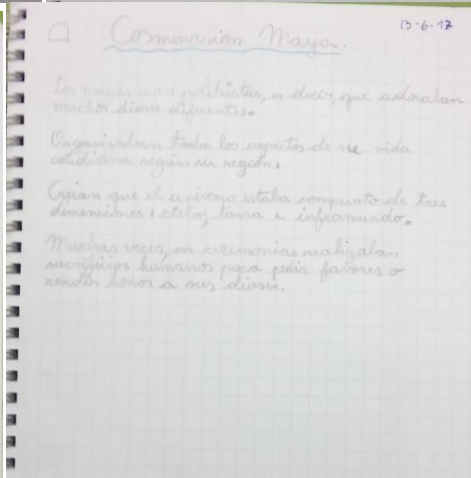 13-6-17
Cosmovosion Maya.
Los mayas eran politeistas, es decir, que adoraban
muchos dioses diferentes.
Organizaban todos los aspectos de su vida
cotidiana según su región.
Creian que el universo estaba compuesto de tres
dimensiones: cielo, tierra e inframundo.
Muchas veces, en ceremonias realizaban
sacrificios humanos para pedir favores o
rendir honor a sus dioses.